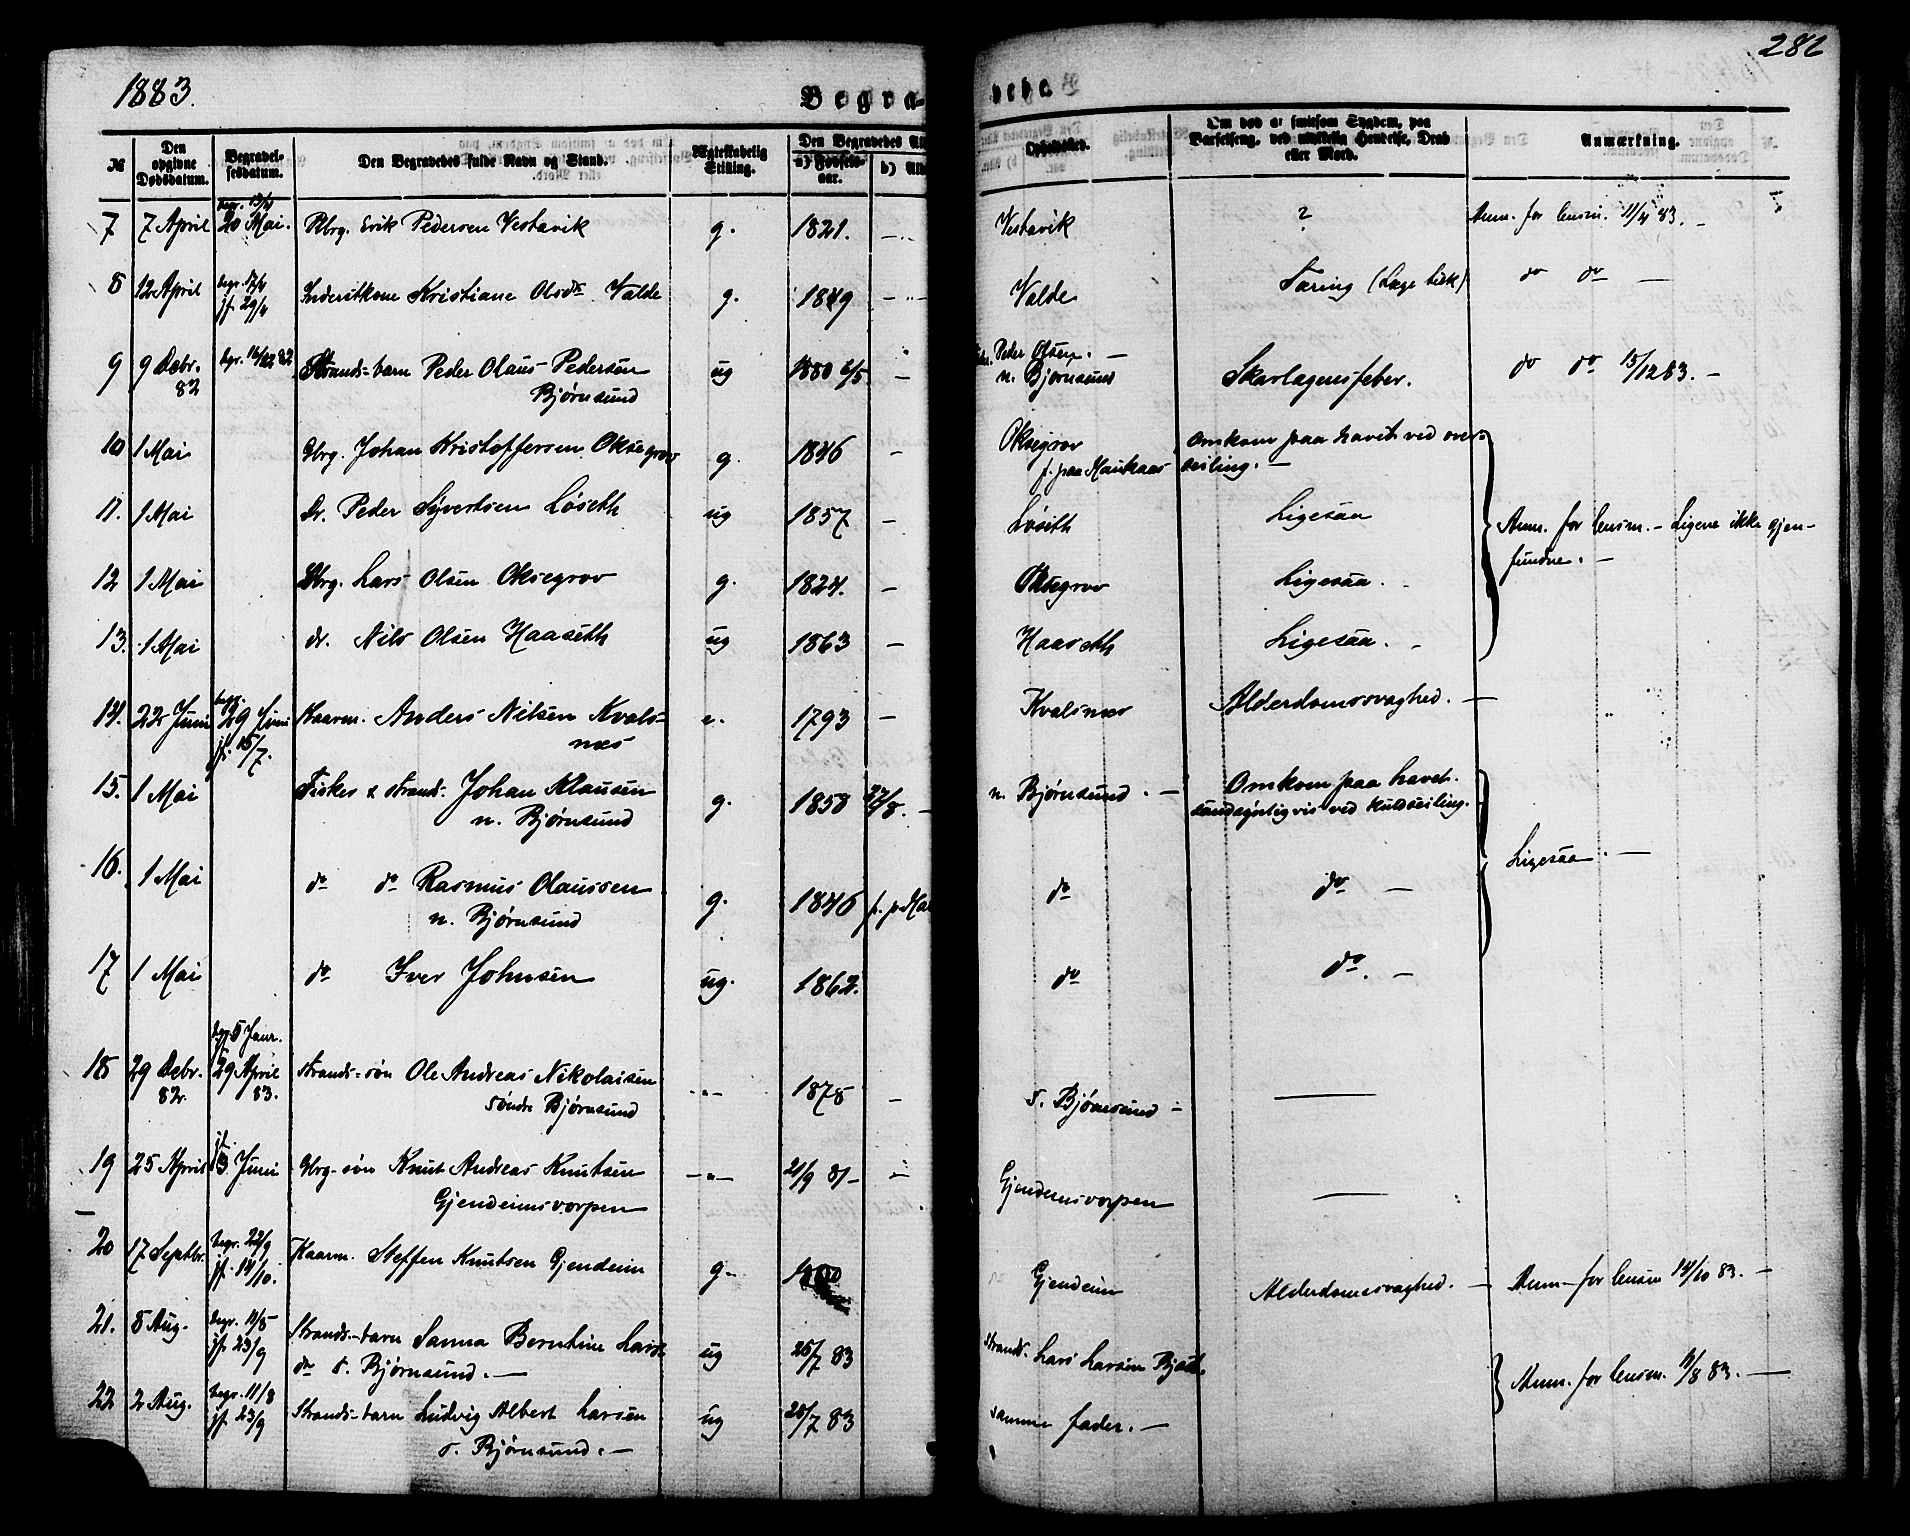 1883.
282
Begra-
vede.
№
Den opgivne Dødsdatum.
Begravelsesdatum.
Den Begravedes fulde Navn og Stand.
Ægteskabelig Stilling.
Den Begravedes
a) Fødselsaar.
b)
Opholdssted.
Om død af smitsom Sygdom, paa Barselseng, ved ulykkelig Hændelse, Drab eller Mord.
Anmærkning.
7 7 April begr. 13/4 20 Mai. Erik Pedersen Vestavik g. 1821. Vestavik ? Anm. for lensm. 11/4 83.
8 12 April begr. 17/4 jf. 29/4 Kristiane Olsdr. Valde g. 1849 Valde Tæring do do
9 9 Decbr. 82 begr. 16/12 82 Strands-barn Peder Olaus Pedersen Bjørnsund ug 1880 Peder Olsen. n. Bjørnsund Skarlagensfeber. do do 15/12 83.
10 1 Mai Gbrg. Johan Kristoffersen Oksegrov g. 1846 Oksegrov Omkom paa havet ved overseiling.
11. 1 Mai Dr. Peder Syvertsen Løseth ug 1857 Løseth Ligesaa Anm. for lensm. – Ligene ikke gjenfundne.
12 1 Mai Gbrg. Lars Olsen Oksegrov g. 1824. Oksegrov Ligesaa.
13. 1 Mai dr. Nils Olsen Haaseth ug 1863 Haaseth Ligesaa.
14. 22 Juni begr. 29 Juni jf. 15/7. Kaarm. Anders Nilsen Kvalsnæs e. 1793 Kvalsnæs Alderdomssvaghed.
15. 1 Mai Fisker & strands. Johan Klausen n. Bjørnsund g. 1858 n. Bjørnsund. Omkom paa havet. sandsynligvis ved kuldseiling.
16. 1 Mai do do Rasmus Olaussen n. Bjørnsund g. 1846 do do Ligesaa.
17 1 Mai do Iver Johnsen ug. 1862. do do.
18 29 Decbr. 82. begr. 5 Janr. jf. 29 April 83. Strands-søn Ole Andreas Nikolaisen søndre Bjørnsund 1878 s. Bjørnsund
19 25 April jf. 3 Juni Gbrg-søn Knut Andreas Knutsen Gjendemsvorpen 21/9 81 Gjendemsvorpen
20 17 Septbr. begr. 22/9 jf. 14/10. Kaarm. Steffen Knutsen Gjendem g. Gjendem Alderdomssvaghed. Anm. for lensm 14/10 83.
21. 8 Aug. begr. 11/8 jf. 23/9 Strands-barn Sanna Berntine Larsdr s. Bjørnsund. ug 25/7 83 Strands. Lars Larsen
22 2 Aug. begr. 11/8 jf. 23/9 Strands-barn Ludvig Albert Larsen s. Bjørnsund. ug 25/7 83 samme fader. Anm. for lensm. 11/8 83.